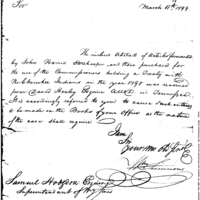 Sir
March 11th 1799
The inclosed Abstract of Articles furnished
by John Harris Storekeeper, and those purchased for
the use of the Commissioners holding a Treaty with
the Cherokee Indians in the year 1798 was received
from David Henley Esquire Agent in Tennessee.
It is accordingly referred to you to cause such entries
to be made in the Books of your Office as the nature
of the case shall require
I am
Sir
Your Mo Ob
Samuel Hodgdon Esquire
Superintendent of